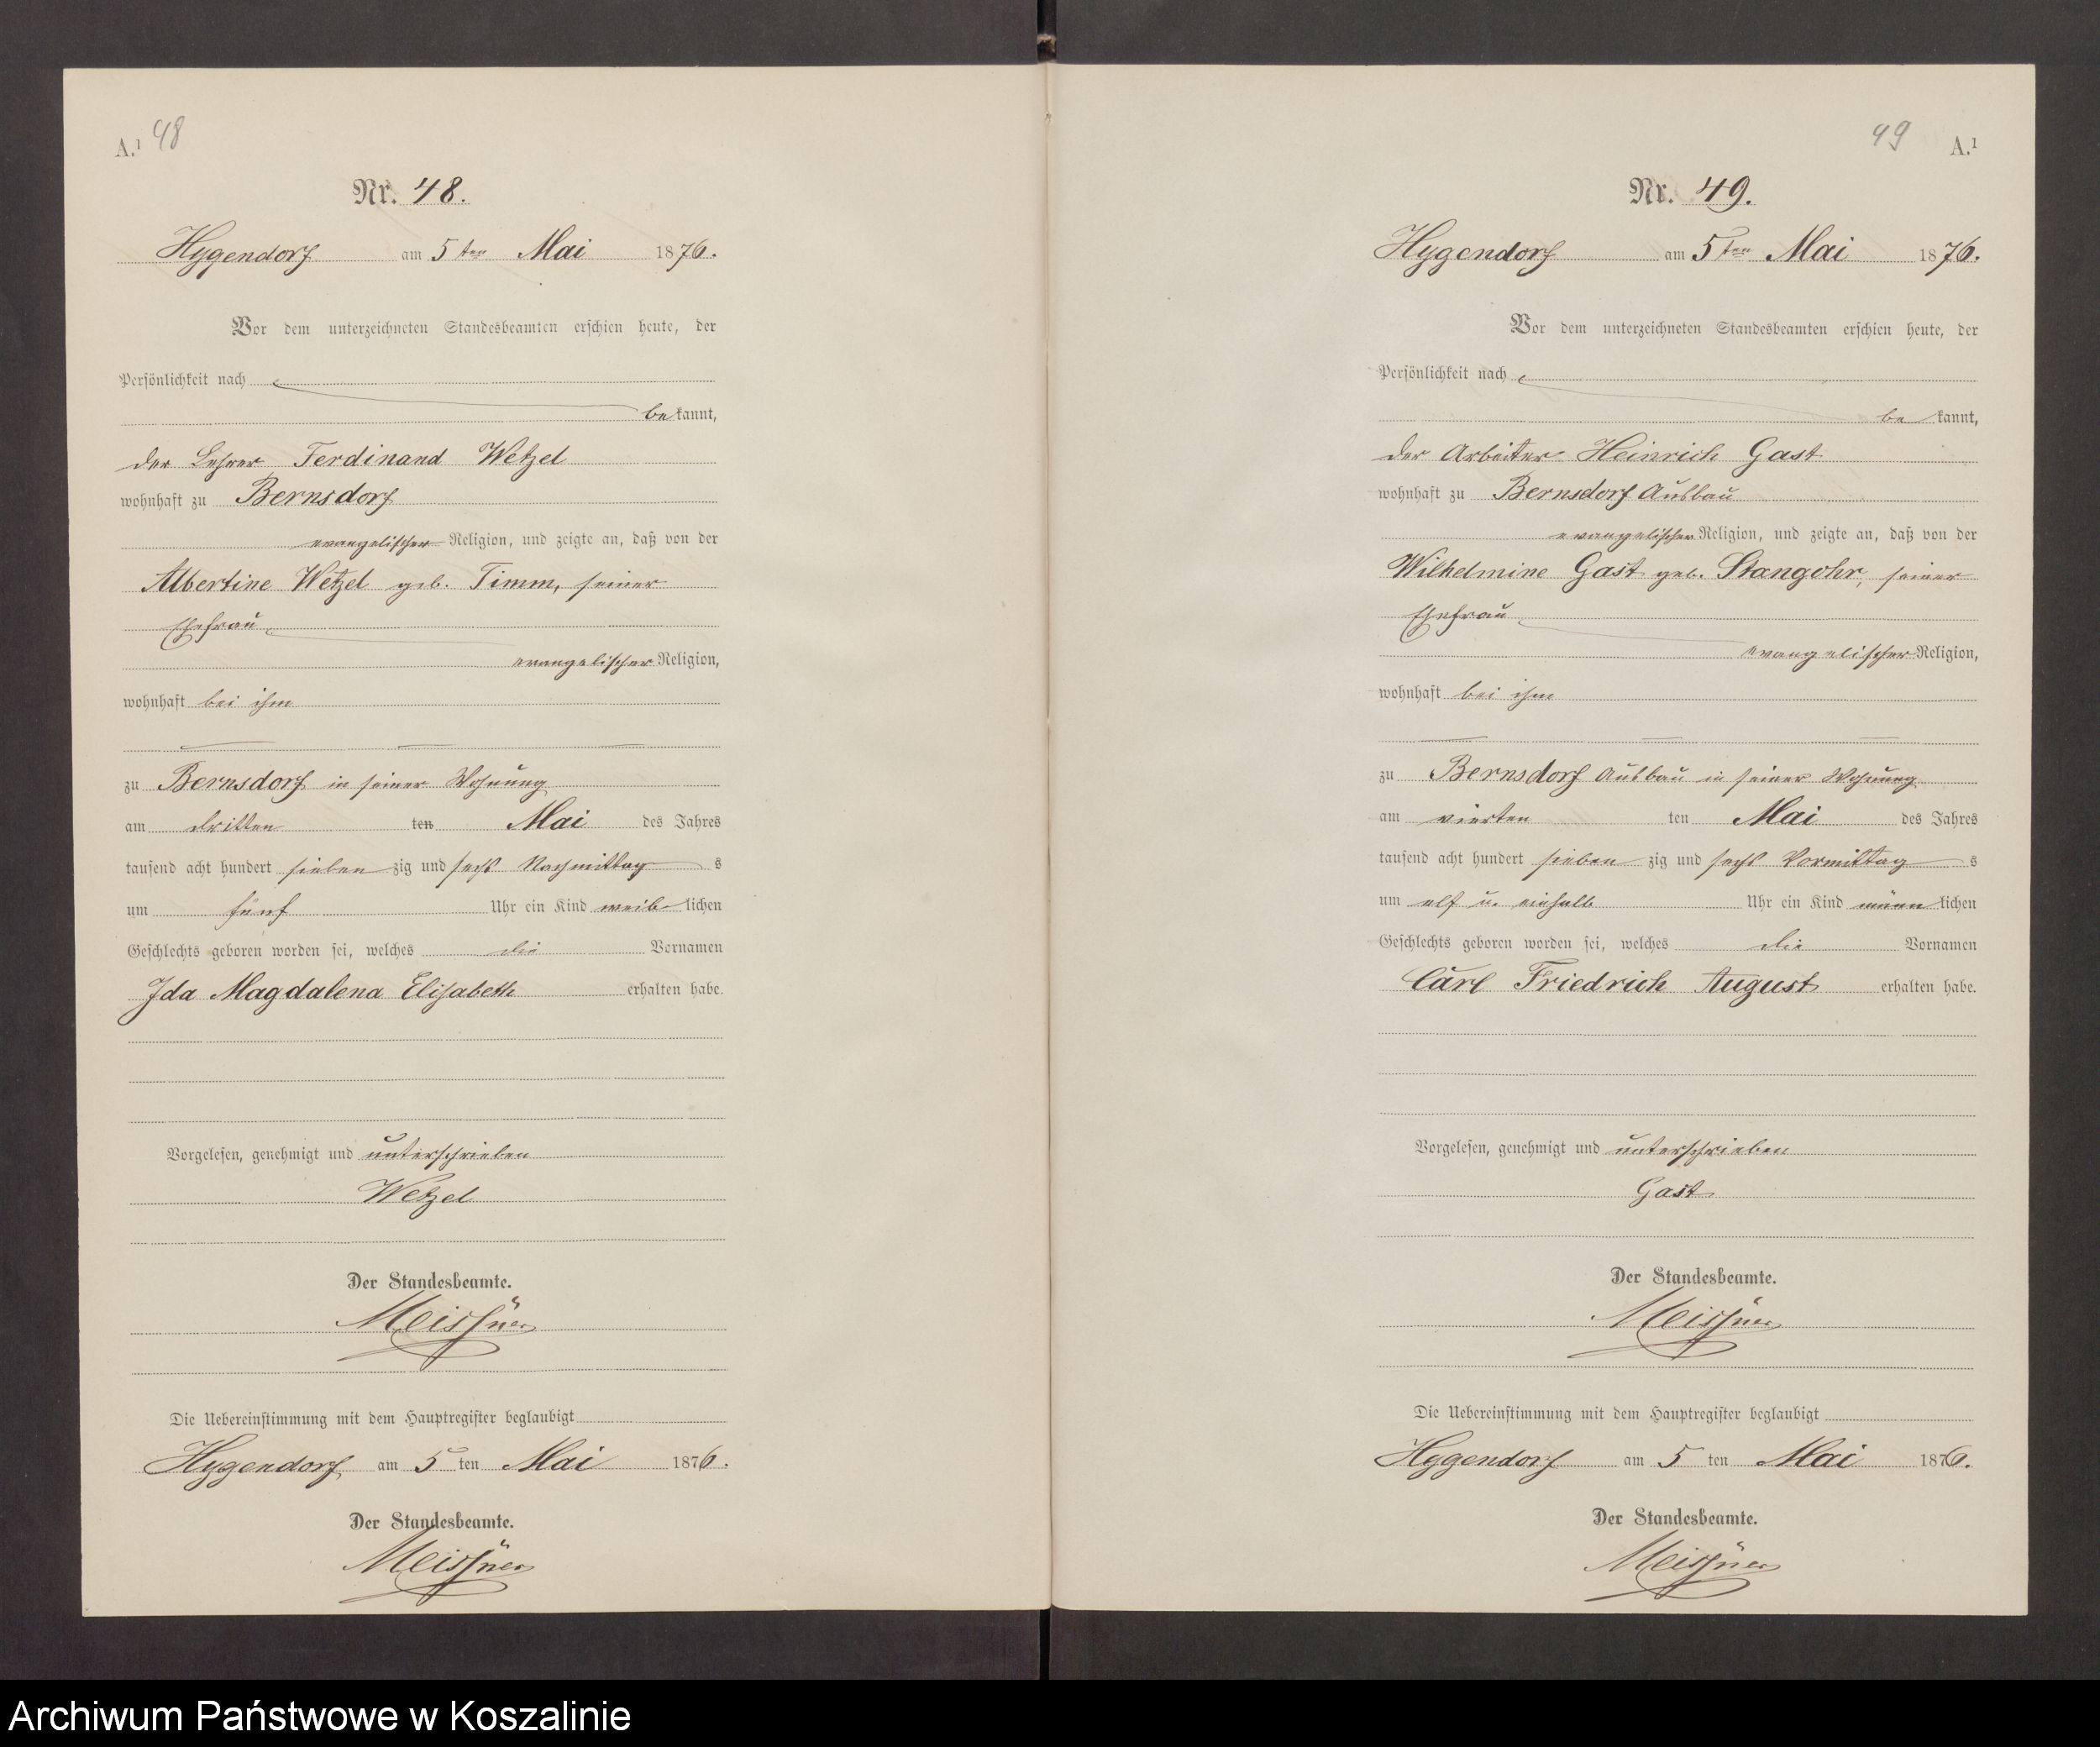 A.¹ 48
Nr. 48.
Hygendorf am 5ten Mai 1876.
Vor dem unterzeichneten Standesbeamten erschien heute, der
Persönlichkeit nach
bekannt,
der Lehrer Ferdinand Wetzel
wohnhaft zu Bernsdorf
evangelischer Religion, und zeigte an, daß von der
Albertine Wetzel geb. Timm, seiner
Ehefrau
evangelischer Religion,
wohnhaft bei ihm
zu Bernsdorf in seiner Wohnung
am dritten ten Mai des Jahres
tausend acht hundert sieben zig und sechs Nachmittag s
um fünf Uhr ein Kind weib lichen
Geschlechts geboren worden sei, welches die Vornamen
Ida Magdalena Elisabeth erhalten habe.
Vorgelesen, genehmigt und unterschrieben
Wetzel
Der Standesbeamte.
Meissner
Die Uebereinstimmung mit dem Hauptregister beglaubigt
Hygendorf am 5 ten Mai 1876.
Der Standesbeamte.
Meissner
49 A.¹
Nr. 49.
Hygendorf am 5ten Mai 1876.
Vor dem unterzeichneten Standesbeamten erschien heute, der
Persönlichkeit nach
be kannt,
der Arbeiter Heinrich Gast
wohnhaft zu Bernsdorf Ausbau
evangelischer Religion, und zeigte an, daß von der
Wilhelmine Gast geb. Stangohr, seiner
Ehefrau
evangelischer Religion,
wohnhaft bei ihm
zu Bernsdorf Ausbau in seiner Wohnung
am vierten ten Mai des Jahres
tausend acht hundert sieben zig und sechs Vormittag s
um elf u. einhalb Uhr ein Kind männ lichen
Geschlechts geboren worden sei, welches die Vornamen
Carl Friedrich August erhalten habe.
Vorgelesen, genehmigt und unterschrieben
Gast
Der Standesbeamte.
Meissner
Die Uebereinstimmung mit dem Hauptregister beglaubigt
Hygendorf am 5 ten Mai 1876.
Der Standesbeamte.
Meissner
Archiwum Państwowe w Koszalinie